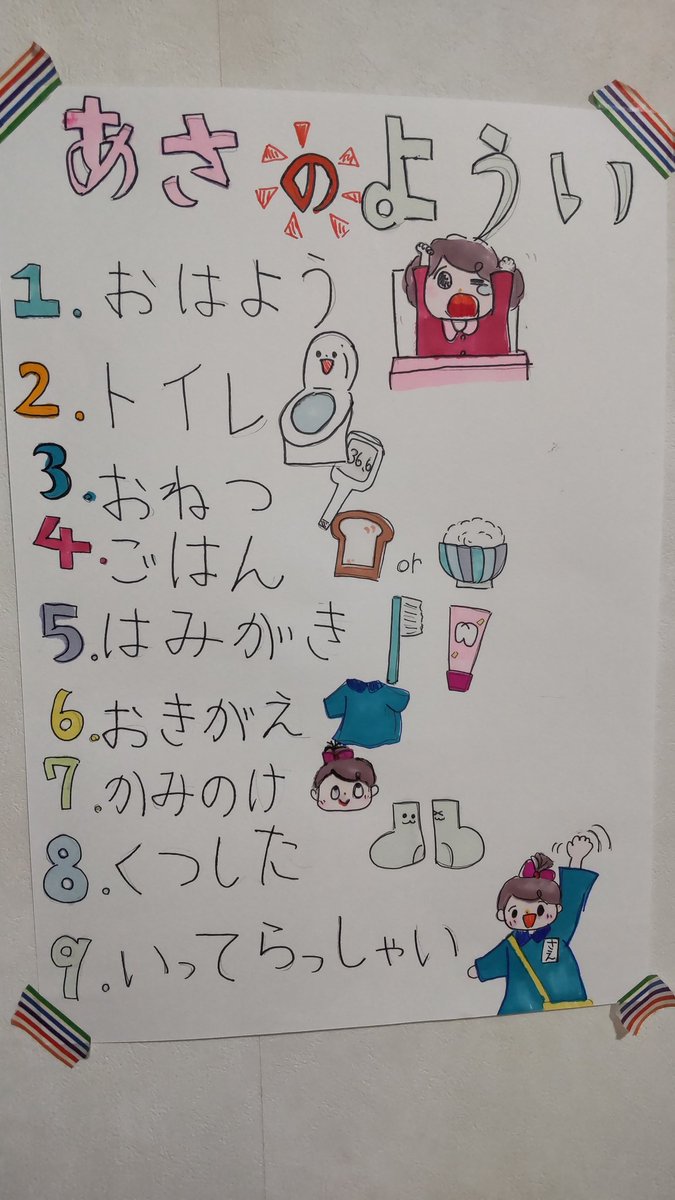 あさのようい
1. おはよう
2. トイレ
3. おねつ
36.6
4. ごはん
or
5. はみがき
6. おきがえ
7. かみのけ
8. くつした
9. いってらっしゃい
さえ